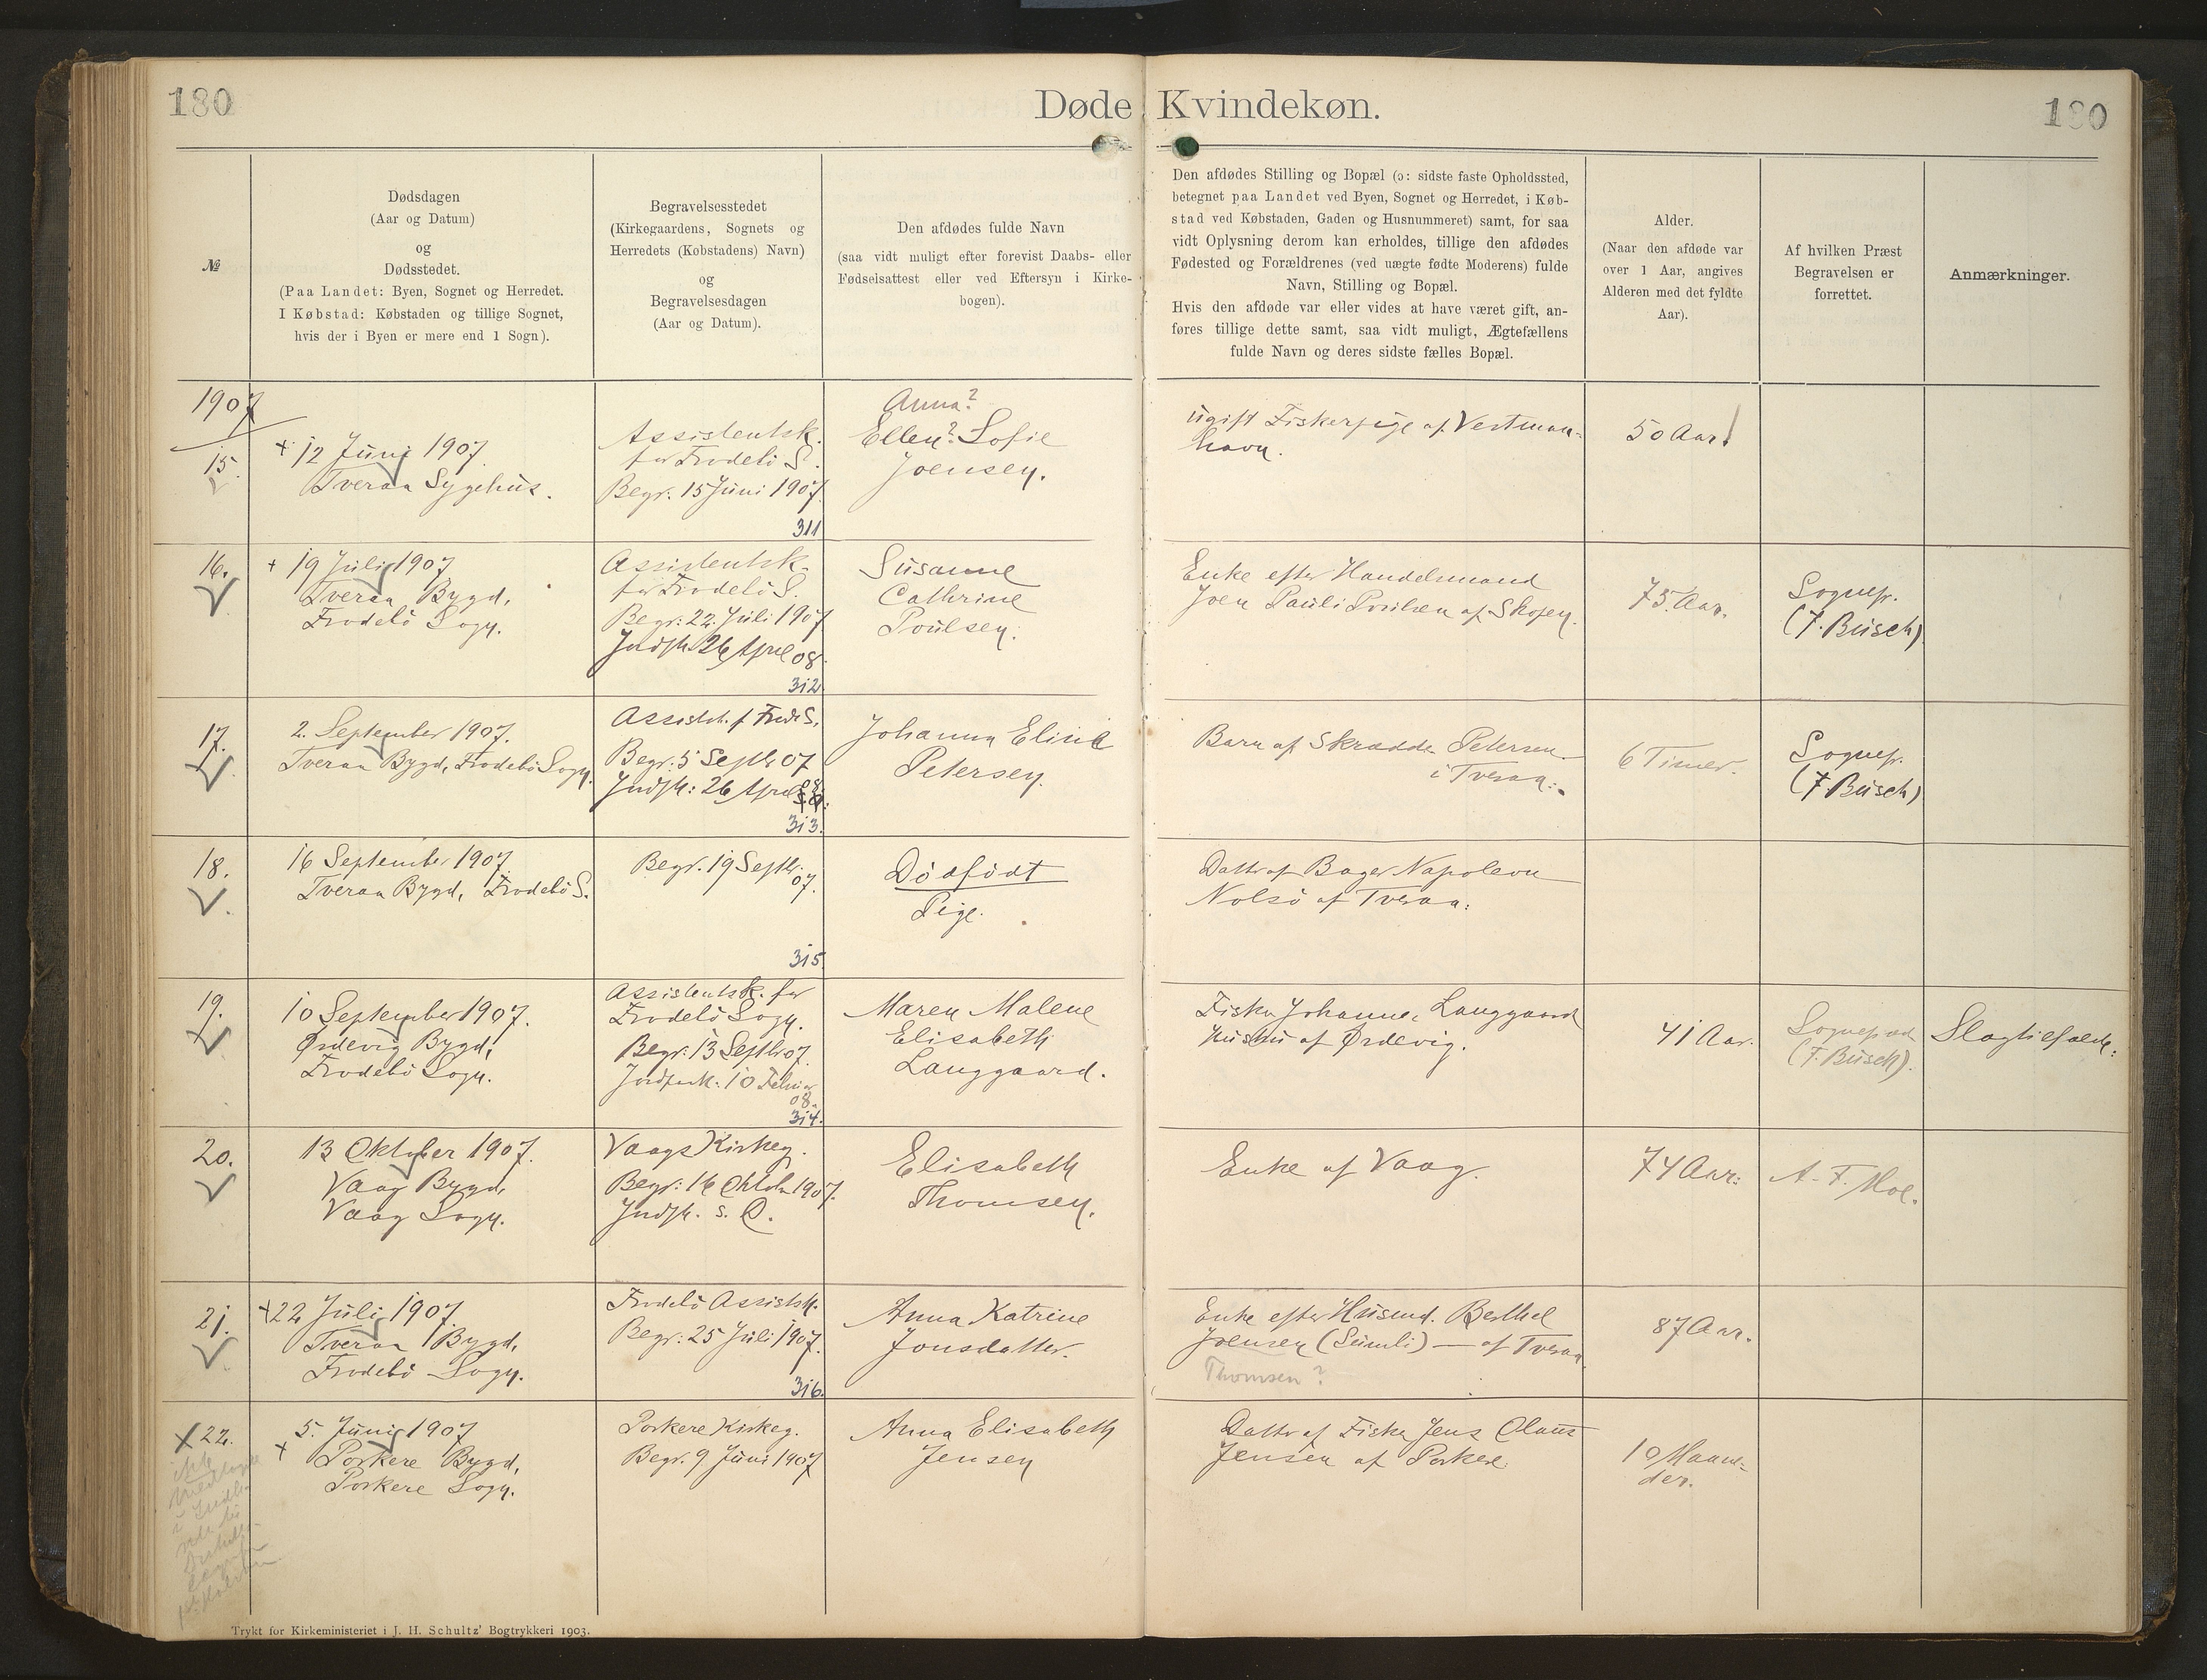 180
Døde Kvindekøn.
180
№
Dødsdagen
(Aar og Datum)
og
Dødsstedet.
(Paa Landet: Byen, Sognet og Herredet.
I Købstad: Købstaden og tillige Sognet,
hvis der i Byen er mere end 1 Sogn).
Begravelsesstedet
(Kirkegaardens, Sognets og
Herredets (Købstadens) Navn)
og
Begravelsesdagen
(Aar og Datum).
Den afdødes fulde Navn
(saa vidt muligt efter forevist Daabs- eller
Fødselsattest eller ved Eftersyn i Kirke-
bogen).
Den afdødes Stilling og Bopæl (ɔ: sidste faste Opholdssted,
betegnet paa Landet ved Byen, Sognet og Herredet, i Køb-
stad ved Købstaden, Gaden og Husnummeret) samt, for saa
vidt Oplysning derom kan erholdes, tillige den afdødes
Fødested og Forældrenes (ved uægte fødte Moderens) fulde
Navn, Stilling og Bopæl.
Hvis den afdøde var eller vides at have været gift, an-
føres tillige dette samt, saa vidt muligt, Ægtefællens
fulde Navn og deres sidste fælles Bopæl.
Alder.
(Naar den afdøde var
over 1 Aar, angives
Alderen med det fyldte
Aar).
Af hvilken Præst
Begravelsen er
forrettet.
Anmærkninger.
1907
15.
+ 12 Juni 1907
Tveraa Sygehus.
Assistentsk.
for Frodebö S.
Begr: 15 Juni 1907
311
Anna?
Ellen? Sofie
Joensen.
ugift Fiskerpige af Vestman-
havn.
50 Aar
16.
+ 19 Juli 1907
Tveraa Bygd,
Frodebö Sogn.
Assistentsk.
for Frodebö S.
Begr: 22. Juli 1907
Jndsk. 26 April 08.
312
Susanne
Cathrine
Poulsen.
Enke efter Handelsmand
Joen Pauli Poulsen af Skopen.
75 Aar.
Sognep.
(F. Busch)
17.
2. September 1907.
Tveraa Bygd, Frodebö Sogn.
Assistk. f Frode S.
Begr: 5 Septbr 07
Jndsk: 26 April
313.
Johanna Eline
Petersen.
Barn af Skrædder Petersen
i Tveraa.
6 Timer.
Sognep.
(F. Busch)
18.
16 September 1907
Tveraa Bygd, Frodebö S.
Begr. 19 Septbr.
07.
315
Dödfödt
Pige.
Datter af Bager Napoleon
Nolsö af Tveraa.
19.
10 September 1907.
Ørdevig Bygd,
Frodebö Sogn.
Assistentsk. for
Frodebö Sogn.
Begr: 13 Septbr 07
Jordpaak. 10 Februar
08.
314.
Maren Malene
Elisabeth
Langgaard.
Fisker Johannes Langgaard
Hustru af Ørdevig.
41 Aar.
(F. Busch).
20.
13 Oktober 1907.
Vaag Bygd,
Vaag Sogn.
Vaags Kirkeg.
Begr: 16 Oktobr 1907.
Jndsk. s. D.
Elisabeth
Thomsen.
Enke af Vaag.
74 Aar:
21.
+ 22 Juli 1907.
Tveraa Bygd,
Frodebö Sogn.
Frodebö Assistsk.
Begr: 25 Juli 1907.
316.
Anna Katrine
Jonsdatter.
Enke efter Husmd. Berthel
Joensen (Sumbi) — af Tveraa
Thomsen?
87 Aar.
X 22.
5. Juni 1907
+ Porkere Bygd,
Porkere Sogn.
Porkere Kirkeg.
Begr. 9 Juni 1907
Anna Elisabeth
Jensen
Datter af Fisker Jens Claus
Jensen af Porkere
10 Maane-
der.
Trykt for Kirkeministeriet i J. H. Schultz' Bogtrykkeri 1903.